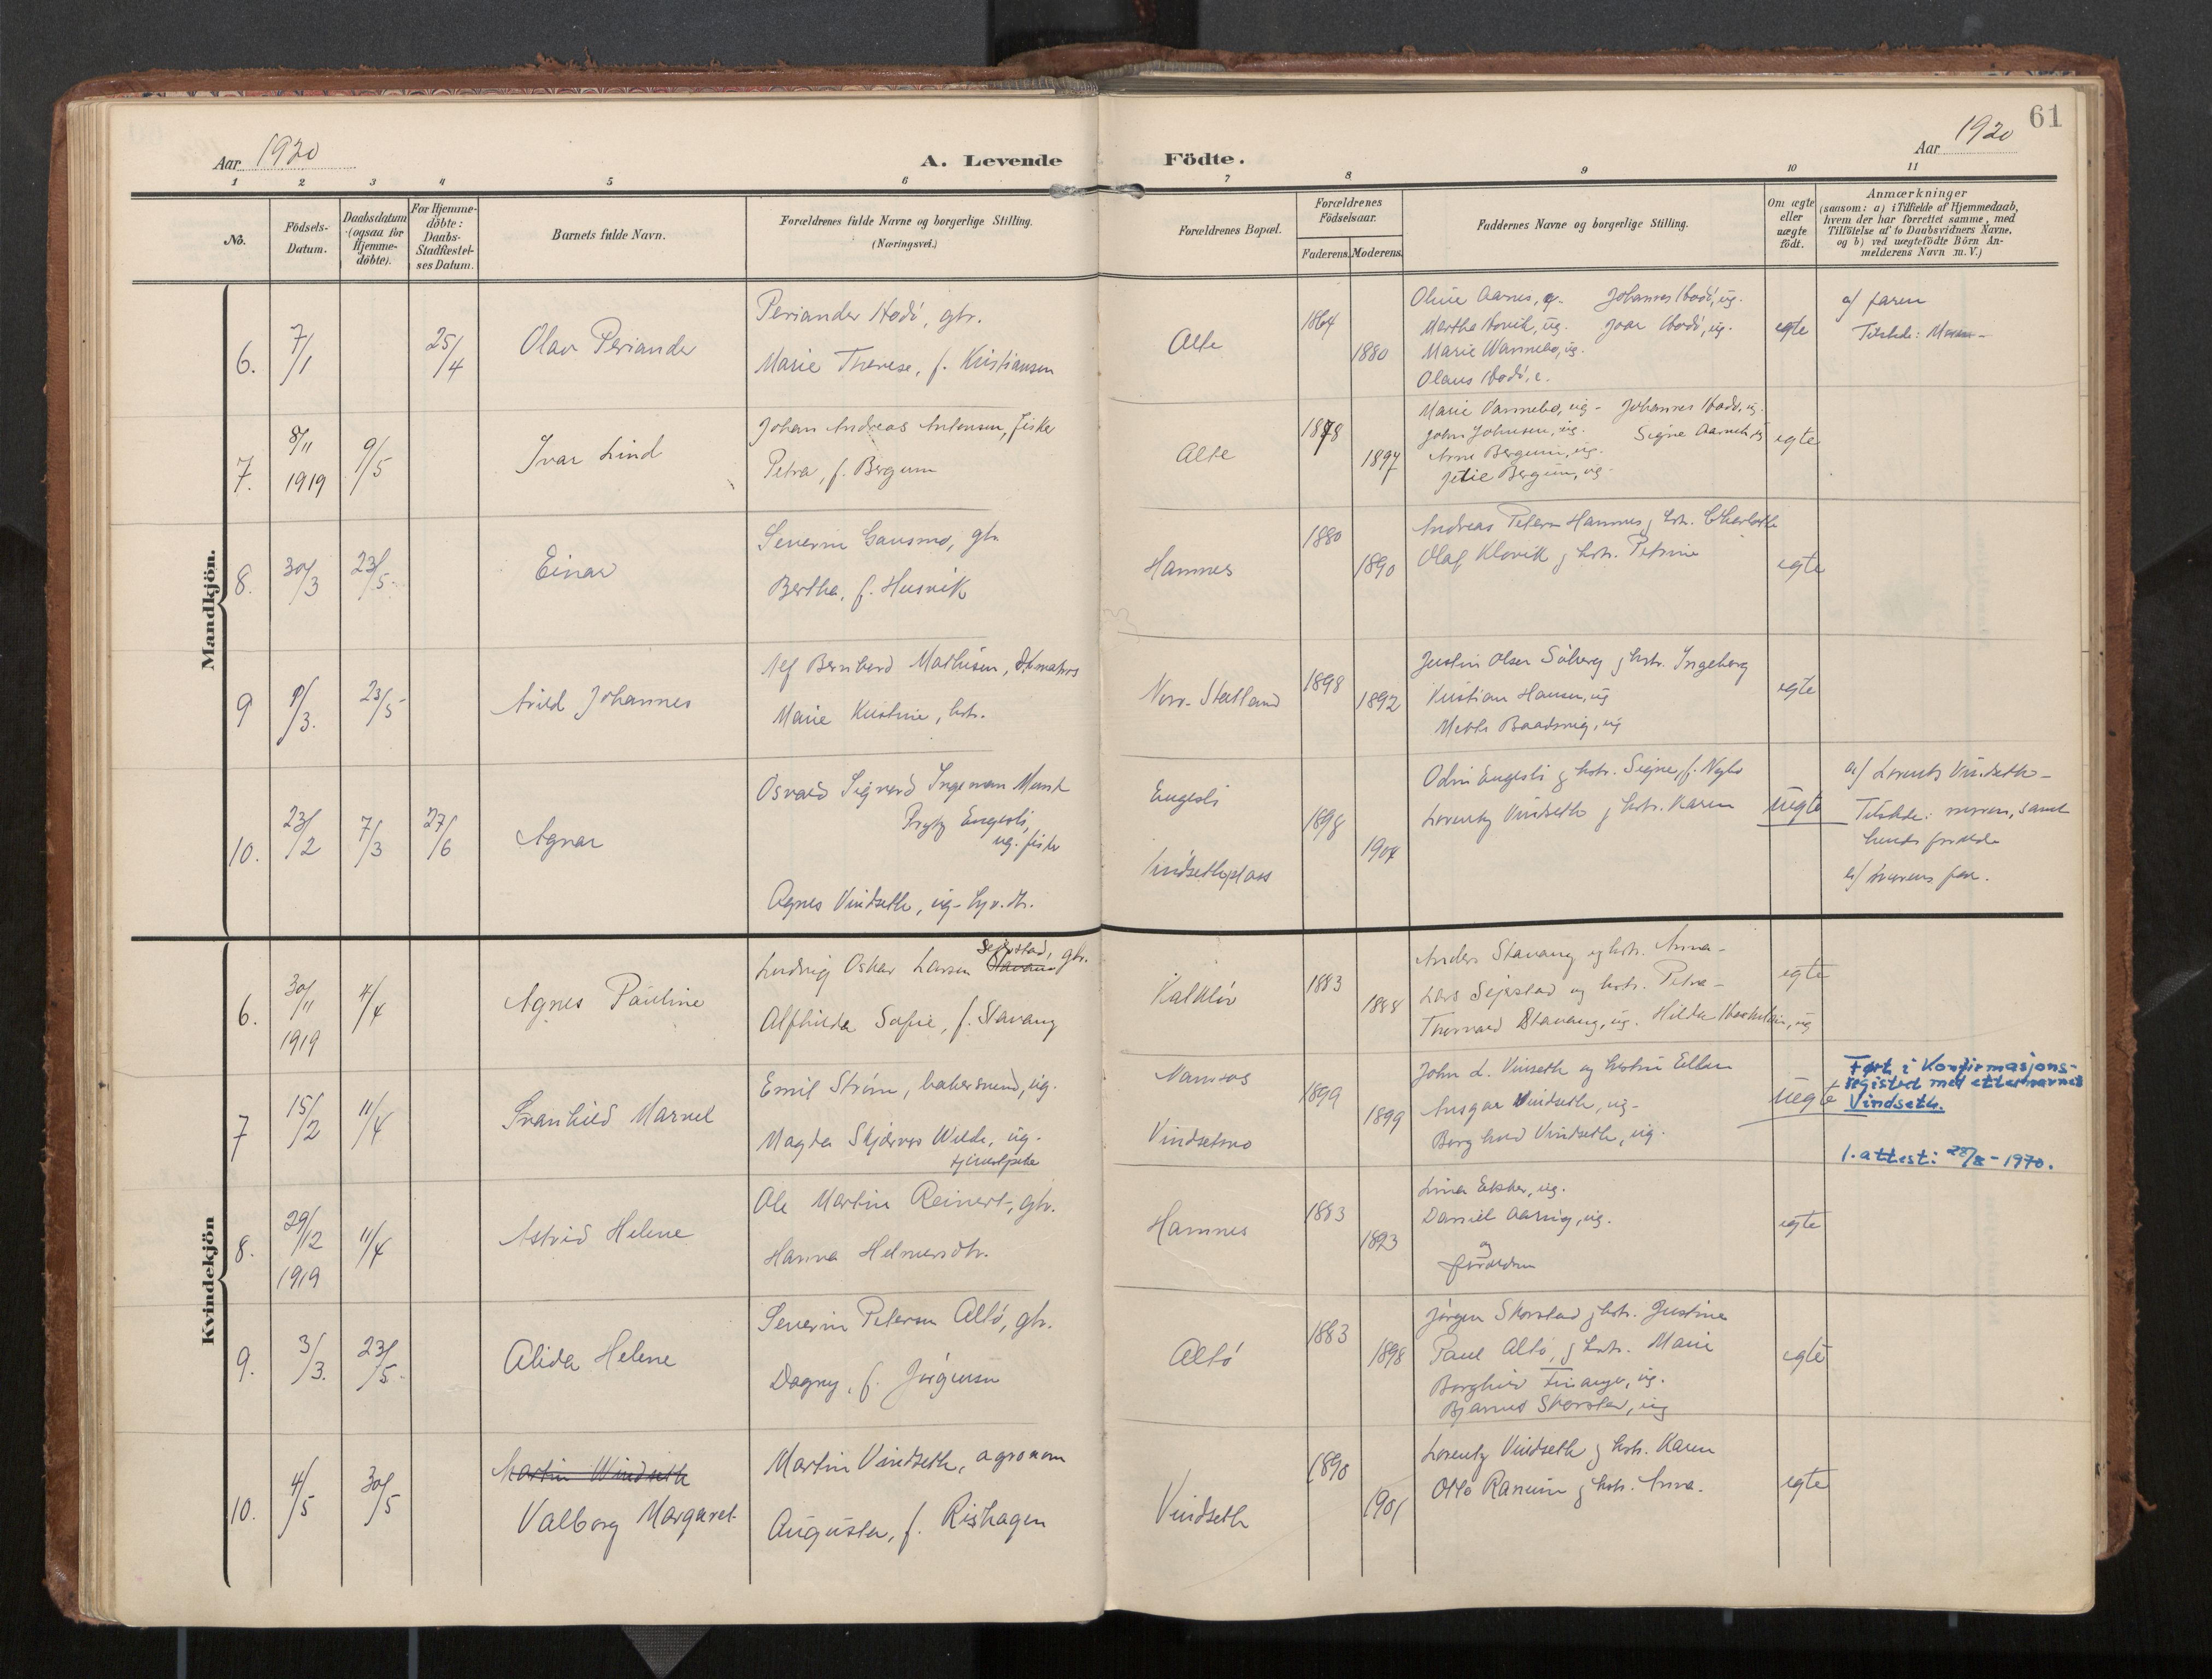 61
Aar 1920
A. Levende Födte.
Aar 1920
1 2 3 4 5 6 7 8 9 10 11
No.
Födsels-
Datum.
Daabsdatum
(ogsaa for
Hjemme-
döbte).
For Hjemme-
döbte:
Daabs-
Stadfæstel-
ses Datum.
Barnets fulde Navn.
Forældrenes fulde Navne og borgerlige Stilling.
(Næringsvei.)
Forældrenes Bopæl.
Forældrenes
Födselsaar.
Faderens. Moderens.
Faddernes Navne og borgerlige Stilling.
Om ægte
eller
uægte
födt.
Anmærkninger
(saasom: a) i Tilfælde af Hjemmedaab,
hvem der har forrettet samme, med
Tilföielse af to Daabsvidners Navne,
og b) ved uægtefödte Börn An-
melderens Navn m. V.)
Mandkjön.
6. 7/1 25/4 Olav Periander
Periander Hodö, gbr.
Marie Therese, f. Kristiansen
Alte 1864 1880
Oline Aarnes, g. Johannes Hodö, ug.
Martha Hovik, ug. Joar Hodö, ug.
Marie Wannebo, ug.
Olaus Hodö, e.
egte
a/ faren
Tilstede:
7. 8/11 1919 9/5 Ivar Lind
Johan Andreas Antonsen, fisker
Petra, f. Bergum
Alte 1878 1897
Marie Vannebo, ug. Johannes Hodö, ug.
John Johnsen, ug. Signe
Arne Bergum, ug.
Jetie Bergum, ug.
egte
8. 30/3 23/5 Einar
Severin Gausmo, gbr.
Bertha, f. Husvik
Hamnes 1880 1890
Andreas Petersen Hamnes, hstr. Charlotte
Olaf Klovik og hstr. Petrine
egte
9 9/3. 23/5 Arild Johannes
Alf Bernhard Mathisen,
Marie Kristine, hstr.
Norr. Statland 1898 1892
Justin Olsen Söberg og hstr. Ingeborg
Kristian Hansen, ug
Methe Baadsvig, ug
egte
10. 23/2 7/3 27/6 Agnar
Osvald Sigvard Ingeman
Engesli,
ug. fisker
Agnes Vindseth, ug.
Engesli
Vindsethplass
1898 1904
Odin Engesli og hstr. Signe, f. Nybo
Lorentz Vindseth og hstr. Karen
uegte
a/ Lorentz Vindseth
Tilstede: moren, samt
hendes forældre
b/ morens far.
Kvindekjön
6. 30/11 1919 4/4 Agnes Pauline
Ludvig Oskar Larsen Stavang Sejestad, gbr.
Alfhilda Sofie, f. Stavang
Kalklöv 1883 1888
Anders Stavang og hstr. Anna
Lars Sejestad og hstr. Petra
Thorvald Stavang, ug. Hilda
egte
7 15/2 11/4 Svanhild Marnel
Emil Ström, bakersvend, ug.
Magda Skjærvö Wilde, ug.
tjenestpike
Namsos
Vindsetmo
1899 1899
John L. Vinseth og hustru Ellen
Ansgar Vindseth, ug.
Borghild Vindseth, ug.
uegte
Ført i Konfirmasjons-
registret med etternavnet
Vindseth.
1. attest: 28/8-1970.
8. 29/12 1919 11/4 Astrid Helene
Ole Martin Reinert, gbr.
Hanna Helmersdtr.
Hamnes 1883 1893
Lina Ekker, ug.
Daniel Aarvig, ug.
og
forældren
egte
9. 3/3. 23/5. Alida Helene
Severin Petersen Altö, gbr.
Dagny, f. Jörgensen
Altö 1883 1898
Jörgen Skorstad og hstr. Justine
Paul Altö, og hstr. Marie
Borghild Finanger, ug.
Bjarne Skorstad, ug
egte
10. 4/5 30/5 Martin Windseth
Valborg Margaret
Martin Vindseth, agronom
Augusta, f. Rishagen
Vindseth 1890 1901
Lorentz Vindseth og hstr. Karen
Otto Ranum og hstr. Anna.
egte